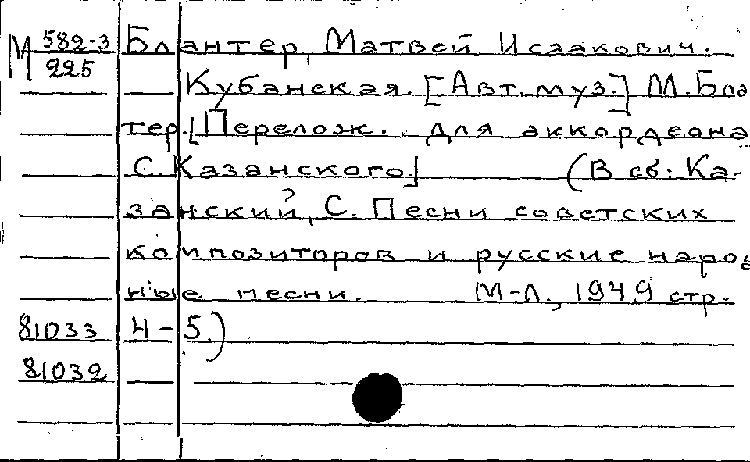 М 582-3 Блантер, Матвей Исаакович.
225 Кубанская. [Авт. муз.] М. Бла
тер. [Перелож. для аккордеона
С. Казанского] (В сб: Ка-
занский, С. Песни советских
композиторов и русские народ
ные песни. М-Л., 1949 стр.
81033 4-5.)
81032